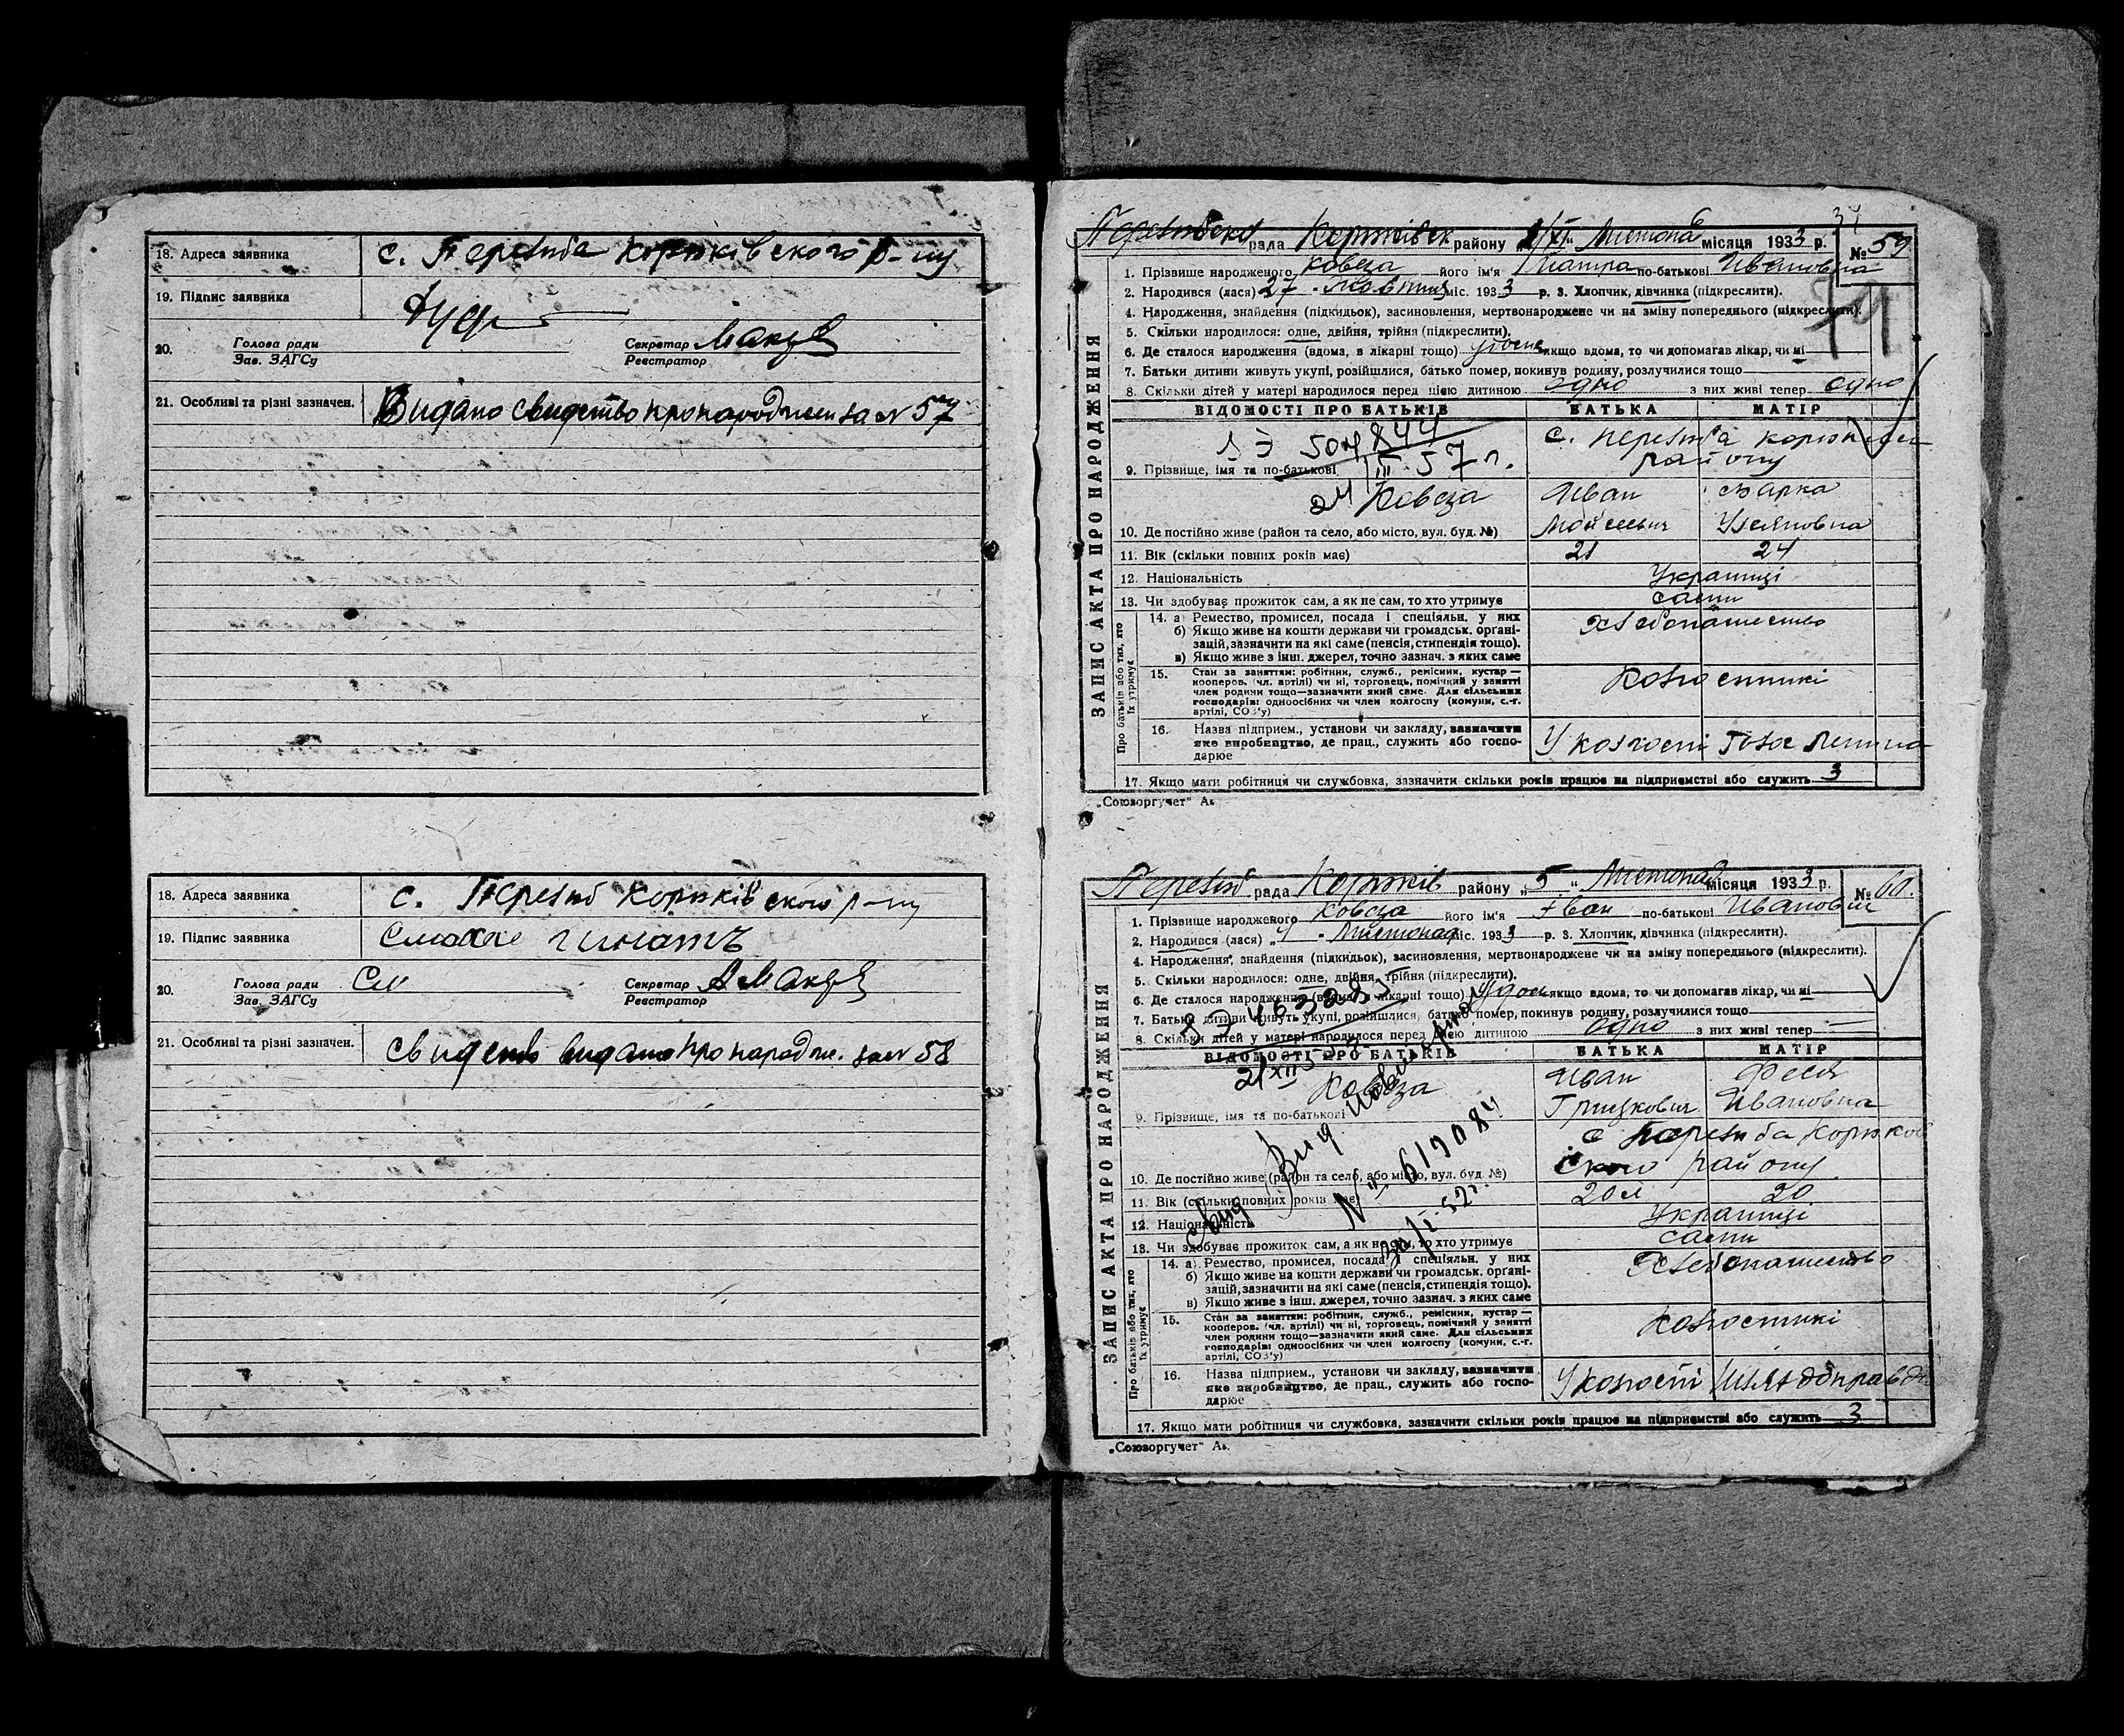 18. Адреса заявника с. Перелюба Корюківского р-ну
19. Підпис заявника
20. Голова ради Секретар
Зав. ЗАГСу Реєстратор
21. Особливі та різні зазначен. Видано свидетво про народжен за № 57
18. Адреса заявника с. Перелюб Корюківского р-ну
19. Підпис заявника
20. Голова ради Секретар
Зав. ЗАГСу Реєстратор
21. Особливі та різні зазначен. свидетво видано про народж. за № 58
34
рада Корюківск району Листопад місяця 1933 р. № 59
ЗАПИС АКТА ПРО НАРОДЖЕННЯ
1. Прізвище народженого Ковеза його ім'я по-батькові Ивановна
2. Народився (лася) 27 Жовтня міс. 1933 р. 3. Хлопчик, дівчинка (підкреслити).
4. Народження, знайдення (підкидьок), засиновлення, мертвонароджене чи на зміну попереднього (підкреслити).
5. Скільки народилося: одне, двійня, трійня (підкреслити).
6. Де сталося народження (вдома, в лікарні тощо) якщо вдома, то чи допомагав лікар, чи ні
7. Батьки дитини живуть укупі, розійшлися, батько помер, покинув родину, розлучилися тощо
8. Скільки дітей у матері народилося перед цією дитиною одно з них живі тепер одно
ВІДОМОСТІ ПРО БАТЬКІВ БАТЬКА МАТІР
504844 с. Перелюба Корюківск
району
9. Прізвище, імя та по-батькові 24/III-57 г.
Ковеза Иван Марка
10. Де постійно живе (район та село, або місто, вул. буд. №) Мойсеевич Уляновна
11. Вік (скільки повних років має) 21 24
12. Національність Українці
13. Чи здобуває прожиток сам, а як не сам, то хто утримує сами
Про батьків або тих, хто їх утримує
14. а) Ремество, промисел, посада і спеціяльн. у них Хлебопашество
б) Якщо живе на кошти держави чи громадськ. органі-
зацій, зазначити на які саме (пенсія, стипендія тощо).
в) Якщо живе з інш. джерел, точно зазнач. з яких саме
15. Стан за заняттям: робітник, служб., ремісник, кустар — Колгоспникі
кооперов. (чл. артілі) чи ні, торговець, помічний у занятті
член родини тощо—зазначити який саме. Для сільських
господарів: одноосібних чи член колгоспу (комуни, с.-г.
артілі, СОЗ'у)
16. Назва підприєм., установи чи закладу, зазначити У колгоспі Голос Ленина
яке виробництво, де прац., служить або госпо-
дарює
17. Якщо мати робітниця чи службовка, зазначити скільки років працює на підприємстві або служить 3
„Союзоргучет“
Перелюб рада Корюків району „5“ Листопад місяця 1933 р. № 60.
ЗАПИС АКТА ПРО НАРОДЖЕННЯ
1. Прізвище народженого Ковеза його ім'я Іван по-батькові Иванович
2. Народився (лася) „4 Листопад міс. 1933 р. 3. Хлопчик, дівчинка (підкреслити).
4. Народження, знайдення (підкидьок), засиновлення, мертвонароджене чи на зміну попереднього (підкреслити).
5. Скільки народилося: одне, двійня, трійня (підкреслити).
6. Де сталося народження (вдома, в лікарні тощо) Удома якщо вдома, то чи допомагав лікар, чи ні
7. Батьки дитини живуть укупі, розійшлися, батько помер, покинув родину, розлучилися тощо
8. Скільки дітей у матері народилося перед цією дитиною одно з них живі тепер —
ВІДОМОСТІ ПРО БАТЬКІВ БАТЬКА МАТІР
Ковеза Иван Феся
9. Прізвище, імя та по-батькові Грицкович Ивановна
с Перелюба Корюков
10. Де постійно живе (район та село, або місто, вул. буд. №) ского району
11. Вік (скільки повних років має) 20 л 20
12. Національність Українці
13. Чи здобуває прожиток сам, а як не сам, то хто утримує сами
Свид Вид
№ 619084
30/I-52г.
Про батьків або тих, хто їх утримує
14. а) Ремество, промисел, посада і спеціяльн. у них Хлебопашество
б) Якщо живе на кошти держави чи громадськ. органі-
зацій, зазначити на які саме (пенсія, стипендія тощо).
в) Якщо живе з інш. джерел, точно зазнач. з яких саме
15. Стан за заняттям: робітник, служб., ремісник, кустар — Колгоспникі
кооперов. (чл. артілі) чи ні, торговець, помічний у занятті
член родини тощо—зазначити який саме. Для сільських
господарів: одноосібних чи член колгоспу (комуни, с.-г.
артілі, СОЗ'у)
16. Назва підприєм., установи чи закладу, зазначити У колгоспі Шлях до правди
яке виробництво, де прац., служить або госпо-
дарює
17. Якщо мати робітниця чи службовка, зазначити скільки років працює на підприємстві або служить 3
„Союзоргучет“